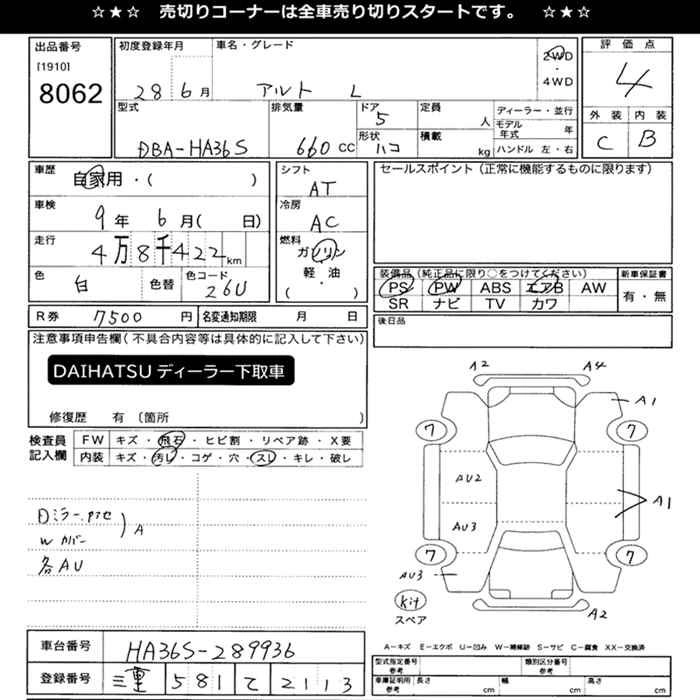 ☆★☆ 売切りコーナーは全車売り切りスタートです。 ☆★☆
出品番号
[1910]
8062
初度登録年月
28 6月
車名・グレード
アルト L
2WD
4WD
評価点
4
型式
DBA-HA36S
排気量
660 CC
ドア
5
形状
ハコ
定員
人
積載
kg
ディーラー・並行
モデル年式 年
ハンドル 左・右
外装 内装
C B
車歴
自家用・( )
車検
9年 6月( 日)
走行
4万8千422km
色
白
色替
色コード
26U
シフト
AT
冷房
AC
燃料
ガソリン
軽・油
( ・ )
セールスポイント(正常に機能するものに限ります)
装備品(純正品に限り○をつけてください)
PS PW ABS エアB AW
SR ナビ TV カワ
新車保証書
有・無
R券 7500円
名変通知期限 月 日
後日品
注意事項申告欄(不具合内容等は具体的に記入して下さい)
DAIHATSU ディーラー下取車
修復歴 有 〔箇所 〕
検査員記入欄
FW キズ・飛石・ヒビ割・リペア跡・X要
内装 キズ・汚レ・コゲ・穴・スレ・キレ・破レ
Dミラー,
W カバー
A
各AU
A2 A4
A1
7 7
AU2
A1
AU3
7 7
AU3
Kit
スペア
A2
A―キズ E―エクボ U―凹み W―補修跡 S―サビ C―腐食 XX―交換済
車台番号 HA36S-289936
登録番号 三重 581 て 2113
型式指定番号 参考
類別区分番号 参考
車庫証明用 参考
長さ cm
幅 cm
高さ cm